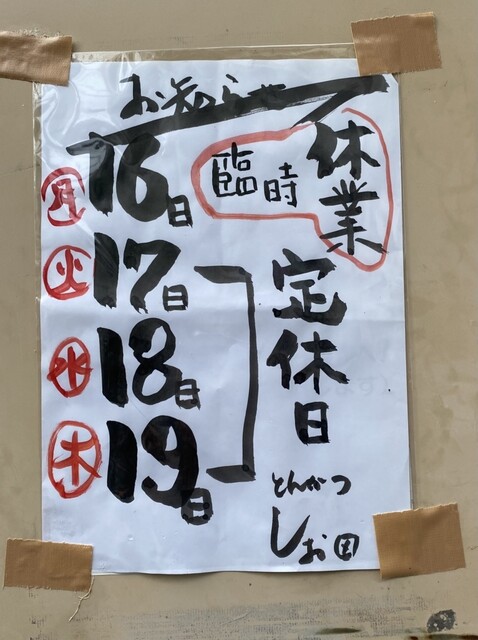 お知らせ
臨時休業
月 16日
火 17日
水 18日
木 19日
定休日
とんかつ
しお田